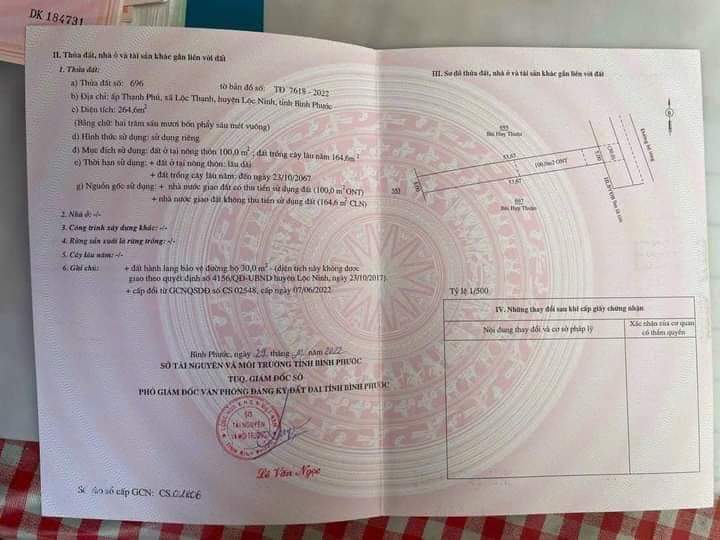 DK 184731
II. Thửa đất, nhà ở và tài sản khác gắn liền với đất
1. Thửa đất:
a) Thửa đất số: 696 tờ bản đồ số: TĐ 7618 - 2022
b) Địa chỉ: ấp Thanh Phú, xã Lộc Thanh, huyện Lộc Ninh, tỉnh Bình Phước
c) Diện tích: 264,6m²
(Bằng chữ: hai trăm sáu mươi bốn phẩy sáu mét vuông)
d) Hình thức sử dụng: sử dụng riêng
đ) Mục đích sử dụng: đất ở tại nông thôn 100,0 m²; đất trồng cây lâu năm 164,6 m²
e) Thời hạn sử dụng: + đất ở tại nông thôn: lâu dài
+ đất trồng cây lâu năm: đến ngày 23/10/2067
g) Nguồn gốc sử dụng: + nhà nước giao đất có thu tiền sử dụng đất (100,0 m² ONT)
+ nhà nước giao đất không thu tiền sử dụng đất (164,6 m² CLN)
2. Nhà ở: -/-
3. Công trình xây dựng khác: -/-
4. Rừng sản xuất là rừng trồng: -/-
5. Cây lâu năm: -/-
6. Ghi chú: + đất hành lang bảo vệ đường bộ 30,0 m² - (diện tích này không được
giao theo quyết định số 4156/QĐ-UBND huyện Lộc Ninh, ngày 23/10/2017).
+ cấp đổi từ GCNQSDĐ số CS 02548, cấp ngày 07/06/2022
Bình Phước, ngày 29 tháng năm 2022
SỞ TÀI NGUYÊN VÀ MÔI TRƯỜNG TỈNH BÌNH PHƯỚC
TUQ. GIÁM ĐỐC SỞ
PHÓ GIÁM ĐỐC VĂN PHÒNG ĐĂNG KÝ ĐẤT ĐAI TỈNH BÌNH PHƯỚC
SỞ
TÀI NGUYÊN
VÀ MÔI TRƯỜNG
Lê Văn Ngọc
Số vào sổ cấp GCN: CS
III. Sơ đồ thửa đất, nhà ở và tài sản khác gắn liền với đất
B
695
Bùi Huy Thuận
53,67
100,0m2 ONT
5,00
5,00
53,67
697
Bùi Huy Thuận
Tỷ lệ 1/500
IV. Những thay đổi sau khi cấp giấy chứng nhận
Nội dung thay đổi và cơ sở pháp lý
Xác nhận của cơ quan
có thẩm quyền